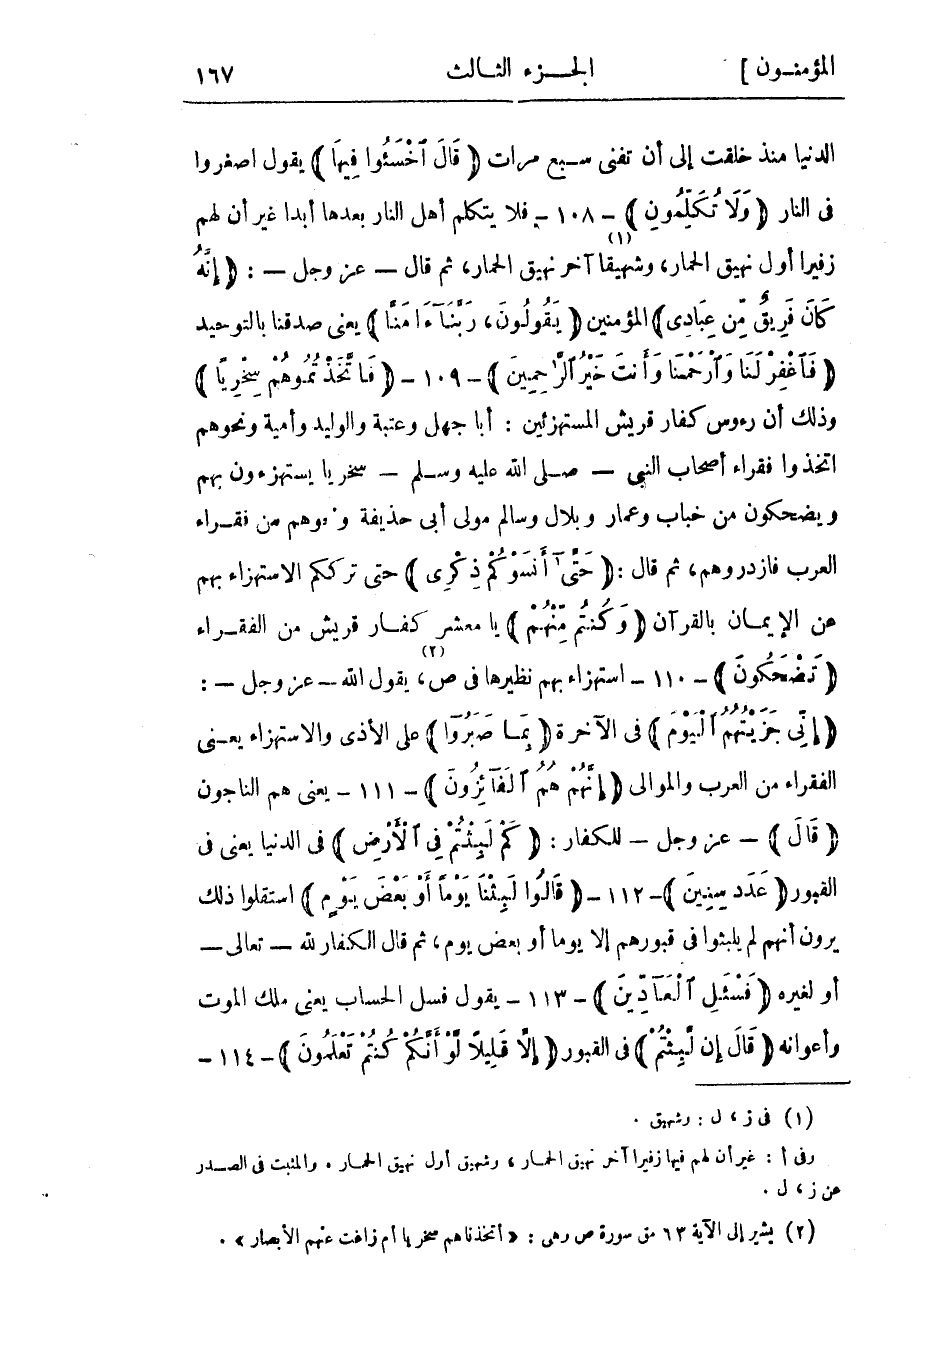 المؤمنـون ] الجـــزء الثـالث ١٦٧
الدنيا منذ خلقت إلى أن تفنى سـبع مرات ﴿ قَالَ ٱخْسَـُٔوا فِيهَا ﴾ يقول اصغروا
فى النار ﴿ وَلَا تُكَلِّمُونِ ﴾ - ١٠٨ - فلا يتكلم أهل النار بعدها أبدا غير أن لهم
زفيرا أول نهيق الحمار، وشهيقا(١) آخر نهيق الحمار، ثم قال — عز وجل — : ﴿ إِنَّهُ
كَانَ فَرِيقٌ مِّن عِبَادِى ﴾ المؤمنين ﴿ يَقُولُونَ، رَبَّنَآ ءَامَنَّا ﴾ يعنى صدقنا بالتوحيد
﴿ فَٱغْفِرْ لَنَا وَٱرْحَمْنَا وَأَنتَ خَيْرُ ٱلرَّٰحِمِينَ ﴾ - ١٠٩ - ﴿ فَٱتَّخَذْتُمُوهُمْ سِخْرِيًّا ﴾
وذلك أن رءوس كفار قريش المستهزئين : أبا جهل وعتبة والوليد وأمية ونحوهم
اتخذوا فقراء أصحاب النبى — صـلى الله عليه وسـلم — سخريا يستهزءون بهم
ويضحكون من خباب وعمار وبلال وسالم مولى أبى حذيفة و وهم من فقـراء
العرب فازدروهم، ثم قال : ﴿ حَتَّىٰٓ أَنسَوْكُمْ ذِكْرِى ﴾ حتى ترككم الاستهزاء بهم
عن الإيمـان بالقرآن ﴿ وَكُنتُم مِّنْهُمْ ﴾ يا معشر كفـار قريش من الفقـراء
﴿ تَضْحَكُونَ ﴾ - ١١٠ - استهزاء بهم نظيرها فى ص(٢)، يقول الله — عز وجل — :
﴿ إِنِّى جَزَيْتُهُمُ ٱلْيَوْمَ ﴾ فى الآخرة ﴿ بِمَـا صَبَرُوٓا ﴾ على الأذى والاستهزاء يعـنى
الفقراء من العرب والموالى ﴿ إِنَّهُمْ هُمُ ٱلْفَآئِزُونَ ﴾ - ١١١ - يعنى هم الناجون
﴿ قَالَ ﴾ — عز وجل — للكفار : ﴿ كَمْ لَبِثْتُمْ فِى ٱلْأَرْضِ ﴾ فى الدنيا يعنى فى
القبور ﴿ عَدَدَ سِنِينَ ﴾ - ١١٢ - ﴿ قَالُوا لَبِثْنَا يَوْمًا أَوْ بَعْضَ يَوْمٍ ﴾ استقلوا ذلك
يرون أنهم لم يلبثوا فى قبورهم إلا يوما أو بعض يوم، ثم قال الكفار لله — تعالى —
أو لغيره ﴿ فَسْئَلِ ٱلْعَآدِّينَ ﴾ - ١١٣ - يقول فسل الحساب يعنى ملك الموت
وأعوانه ﴿ قَالَ إِن لَّبِثْتُمْ ﴾ فى القبور ﴿ إِلَّا قَلِيلًا لَّوْ أَنَّكُمْ كُنتُمْ تَعْلَمُونَ ﴾ - ١١٤ -
(١) فى ز، ل : وشهيق .
وفى أ : غير أن لهم فيها زفيرا آخر نهيق الحمـار، وشهيق أول نهيق الحمـار . والمثبت فى الصـدر
عن ز، ل .
(٢) يشير إلى الآية ٦٣ من سورة ص وهى : « أتخذناهم سخريا أم زاغت عنهم الأبصار » .